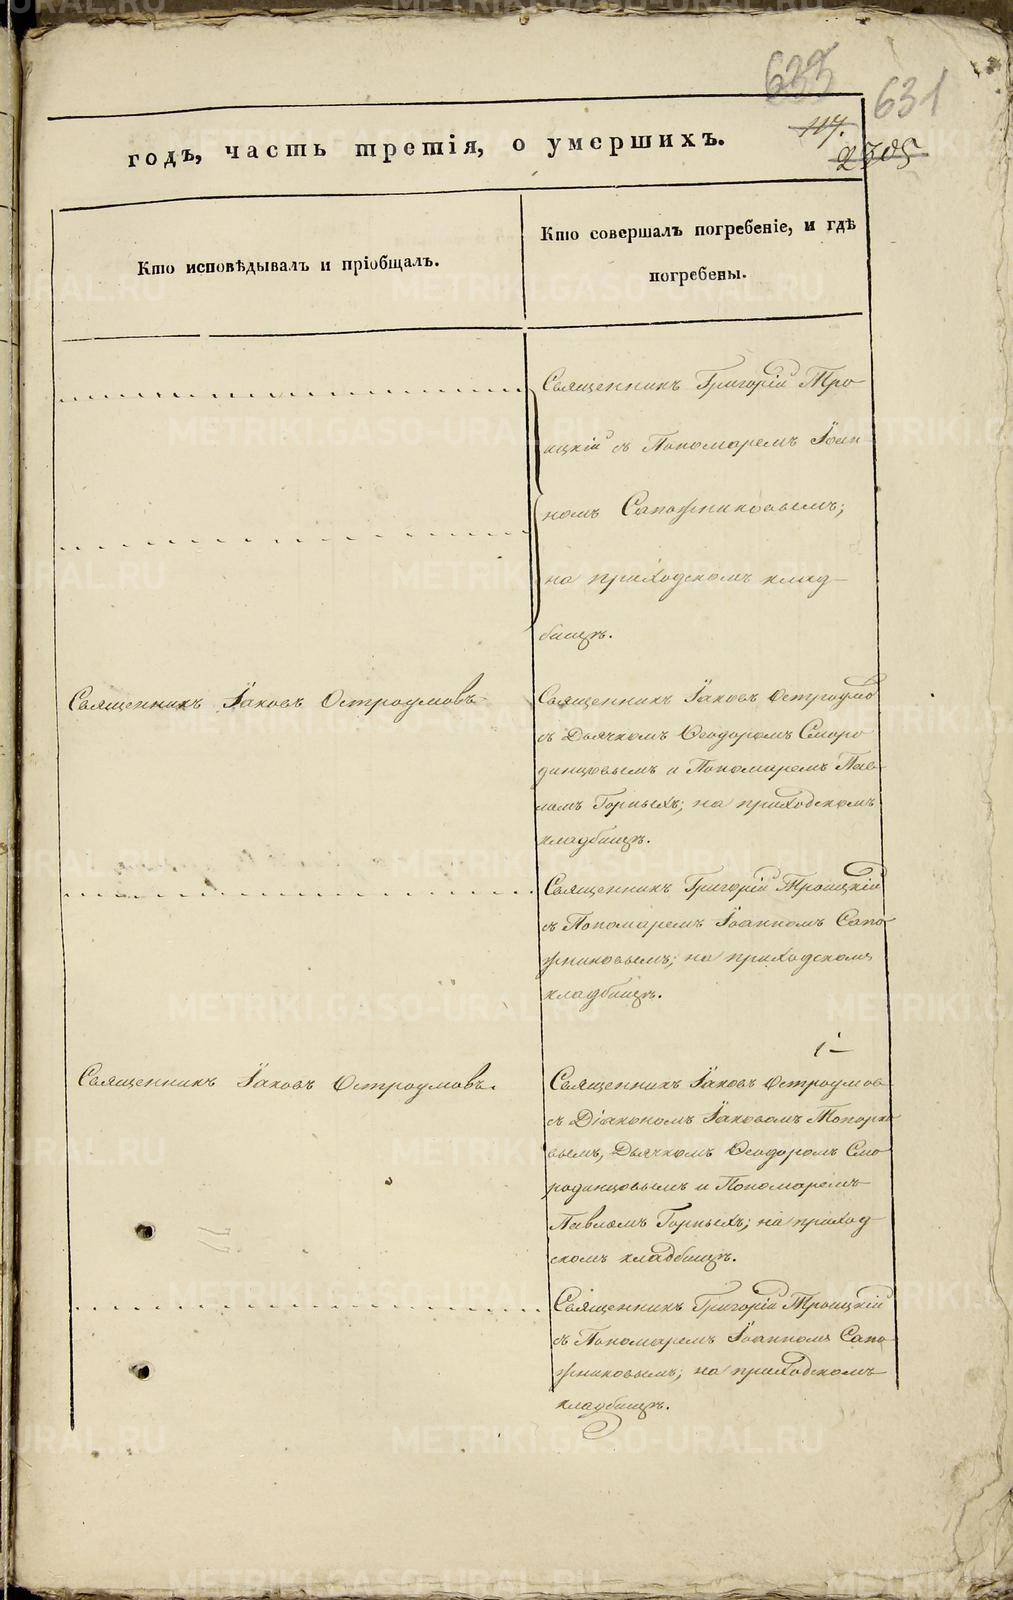 633
631
117.
2305
годъ, часть третія, о умершихъ.
Кто исповѣдывалъ и пріобщалъ.
Кто совершалъ погребеніе, и гдѣ
погребены.
Священникъ Григорій Тро-
ицкій съ Пономаремъ Іоан-
номъ Сапожниковымъ;
на приходскомъ клад-
бищѣ.
Священникъ Іаковъ Остроумовъ
Священникъ Іаковъ Остроумо
съ Дьячкомъ Ѳеодоромъ Сморо
динцовымъ и Пономаремъ Пав-
ломъ Горныхъ; на приходскомъ
кладбищѣ.
Священникъ Григорій Троицкій
съ Пономаремъ Іоанномъ Сапо
жниковымъ; на приходскомъ
кладбищѣ.
Священникъ Іаковъ Остроумовъ.
Священникъ Іаковъ Остроумов
съ Діакономъ Іаковомъ Топорко
вымъ, Дьячкомъ Ѳеодоромъ Смо
родинцовымъ и Пономаремъ
Павломъ Горныхъ; на приход-
скомъ кладбищѣ.
Священникъ Григорій Троицкій
съ Пономаремъ Іоанномъ Сапо
жниковымъ; на приходскомъ
кладбищѣ.
METRIKI.GASO-URAL.RU